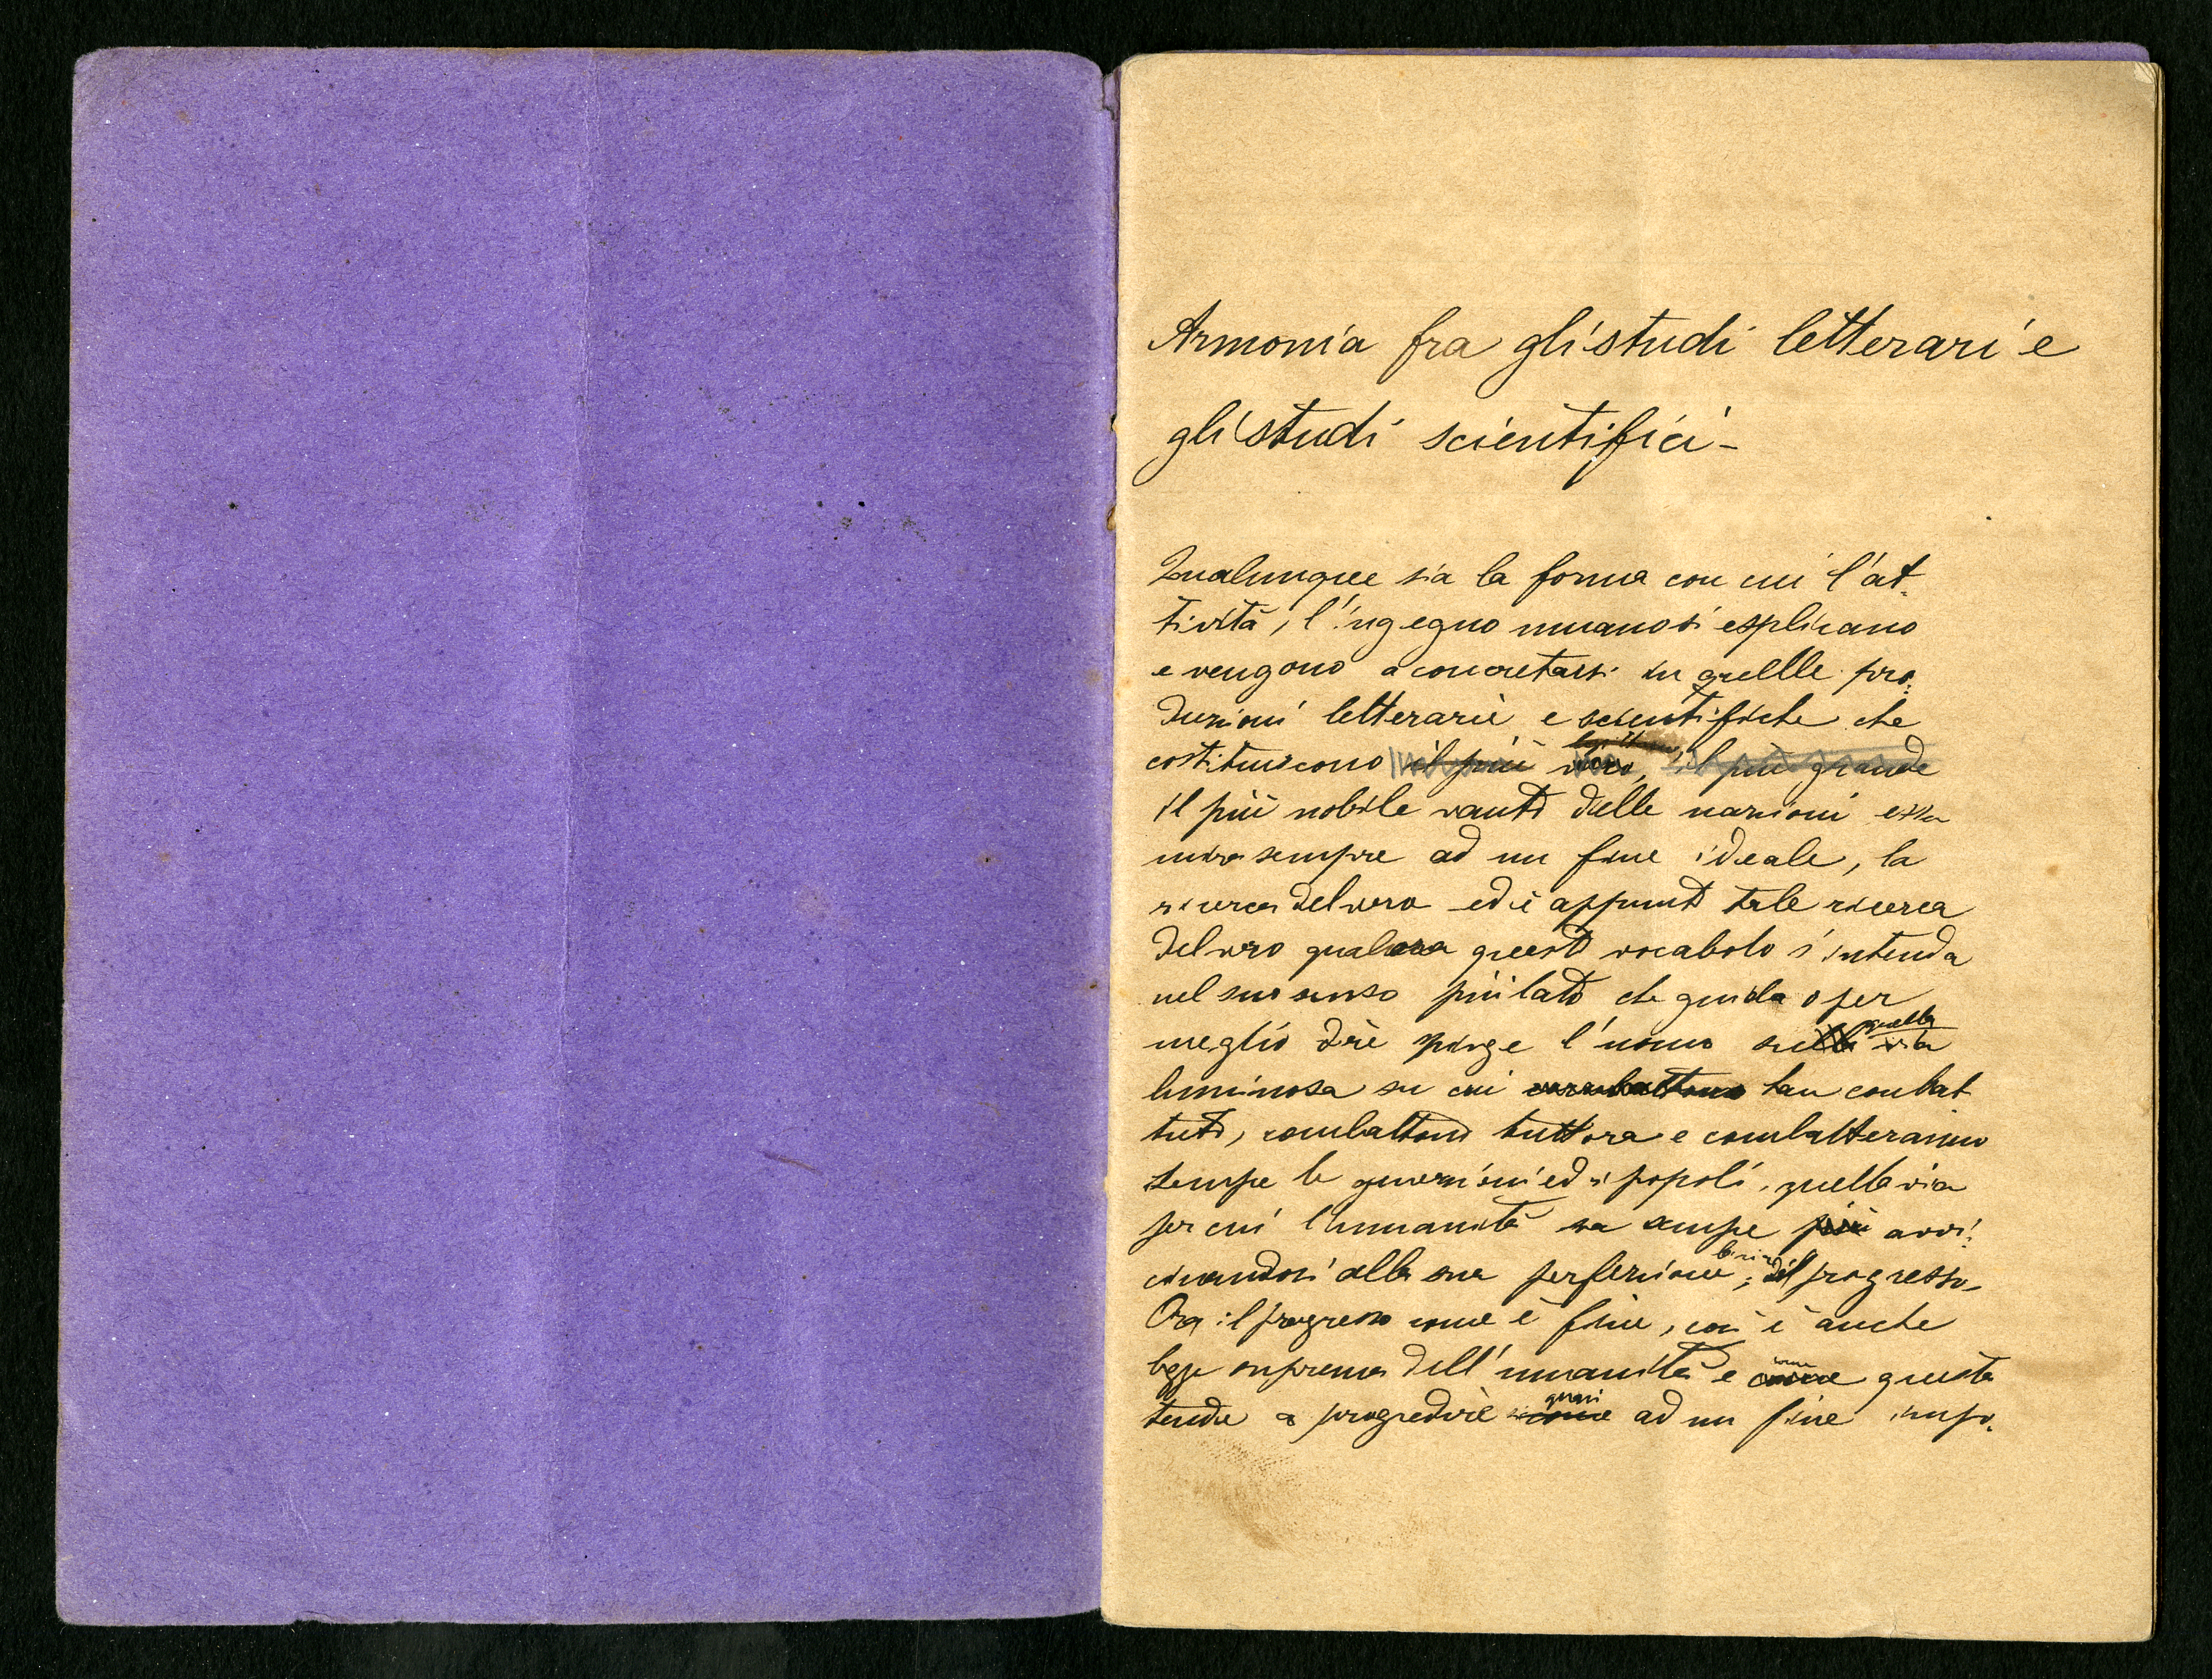 Armonia fra gli studi letterari e
gli studi scientifici -
Qualunque sia la forma con cui l'at-
tività, l'ingegno umano si esplicano
e vengono a concretarsi in quellle pro-
duzioni letterarie e scientifiche che
costituiscono il più vero, il più grande
il più nobile vanto delle nazioni essa
mira sempre ad un fine ideale, la
ricerca del vero ed è appunto tale ricerca
del vero qualora questo vocabolo s'intenda
nel suo senso più lato che guida o per
quella
meglio dire spinge l'uomo sulla via
luminosa su cui combattono han combat
tuto, combattono tuttora e combatteranno
sempre le generazioni ed i popoli, quella via
per cui l'umanità va sempre più avvi-
cinandosi alla sua perfezione, del progresso.
Ora il progresso come è fine, così è anche
legge suprema dell'umanità e come questa
quasi
tende a progredire come ad un fine impo-